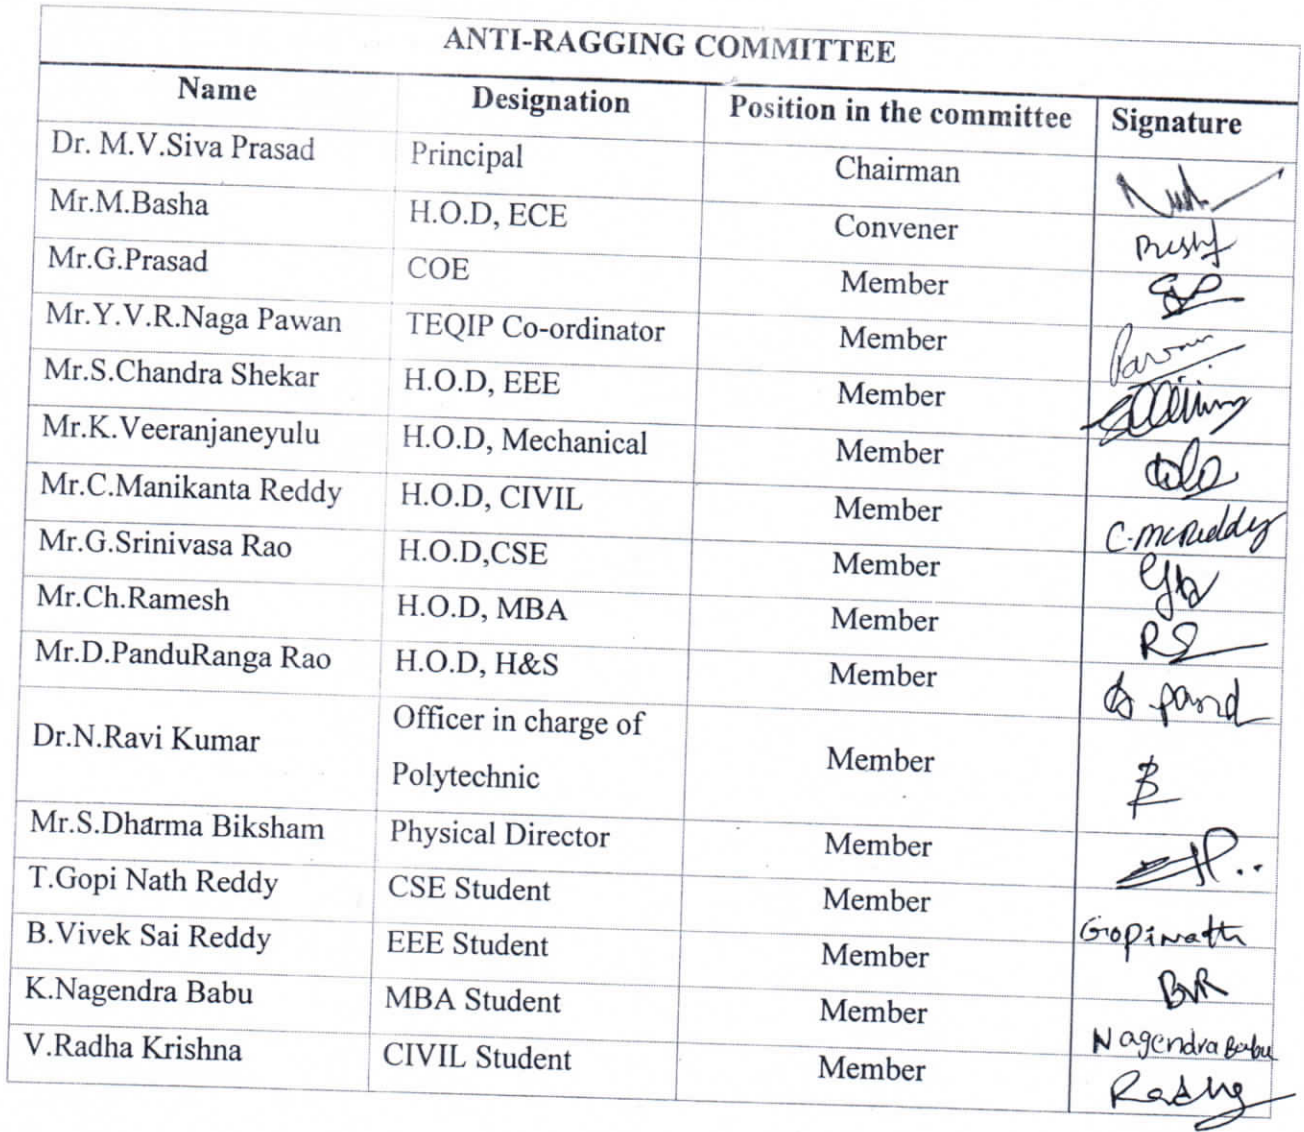 ANTI-RAGGING COMMITTEE
Name Designation Position in the committee Signature
Dr. M.V.Siva Prasad Principal Chairman
Mr.M.Basha H.O.D, ECE Convener
Mr.G.Prasad COE Member
Mr.Y.V.R.Naga Pawan TEQIP Co-ordinator Member
Mr.S.Chandra Shekar H.O.D, EEE Member
Mr.K.Veeranjaneyulu H.O.D, Mechanical Member
Mr.C.Manikanta Reddy H.O.D, CIVIL Member C.McReddy
Mr.G.Srinivasa Rao H.O.D,CSE Member
Mr.Ch.Ramesh H.O.D, MBA Member
Mr.D.PanduRanga Rao H.O.D, H&S Member
Dr.N.Ravi Kumar Officer in charge of
Polytechnic Member
Mr.S.Dharma Biksham Physical Director Member
T.Gopi Nath Reddy CSE Student Member Gopinath
B.Vivek Sai Reddy EEE Student Member BVR
K.Nagendra Babu MBA Student Member Nagendra Babu
V.Radha Krishna CIVIL Student Member